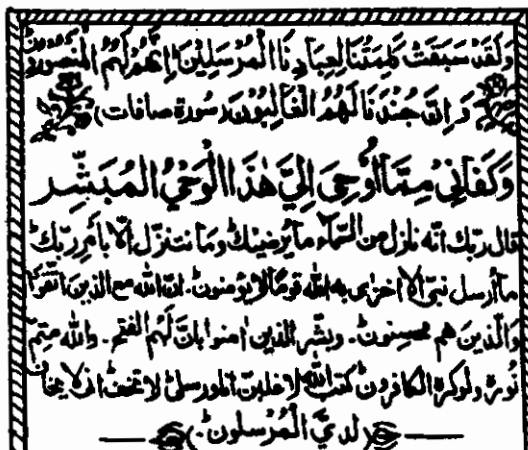 وَلَقَدْ سَبَقَتْ كَلِمَتُنَا لِعِبَادِنَا الْمُرْسَلِيْنَ اِنَّهُمْ لَهُمُ الْمَنْصُوْرُوْنَ
وَ اِنَّ جُنْدَنَا لَهُمُ الْغَالِبُوْنَ (سورة صافات)
وَكَفَانِيْ مِمَّا اُوْحِيَ اِلَيَّ هٰذَا الْوَحْيُ الْمُبَشِّر
قال ربّك انّه نازل من السّمآء ما يرضيك وما نتنزل الّا بامر ربّك
ما اُرسل نبيّ الا اخزٰى به الله قومًا لا يؤمنون۔ انّ الله مع الذين اتّقوا
والّذين هم محسنون۔ وبشّر الذين اٰمنوا بانّ لهم الفتح۔ والله متمّ
نُوره ولوكره الكافرون كتب الله لاغلبنّ انا ورسلي لا تخف انّي لا يخاف
لديّ المُرْسلون۔